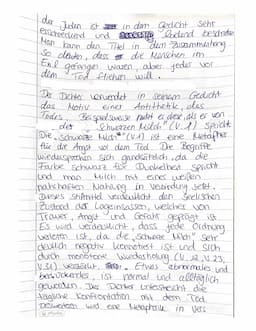 der Juden ist in dem Gedicht sehr
erschreckend und beschrieben
Man kann den Titel in dem Zusammenhang
so deuten, dass die Menschen im
gefangen waren, aber jeder vor
dem Tod fliehen will.
Der Dichter verwendet in seinem Gedicht
das Motiv einer Antithetik, des
Todes. Beispielsweise nutzt er diese, als er von
der „Schwarzen Milch" (V.1) spricht
Die „schwarze Milch" (V.1) ist eine Metapher
für die Angst vor dem Tod. Die Begriffe
wiedersprechen sich grundsätzlich, da die
Farbe schwarz für Dunkelheit spricht
und man Milch mit einer weißen
nahrhaften Nahrung in Verbindung setzt.
Dieses Stilmittel verdeutlicht den seelischen
Zustand der Lagerinsassen, welcher von
Trauer, Angst und Gefahr geprägt ist
Es wird verdeutlicht, dass jede Ordnung
verloren ist, da die „schwarze Milch" sehr
deutlich negativ konnotiert ist und sich
durch monotone Wiederholung (V.12, V.23,
Etwas abnormales und
ist normal und alltäglich
geworden. Der Dichter unterstreicht die
tägliche Konfrontation mit dem Tod
wird eine Metaphorik in Vers